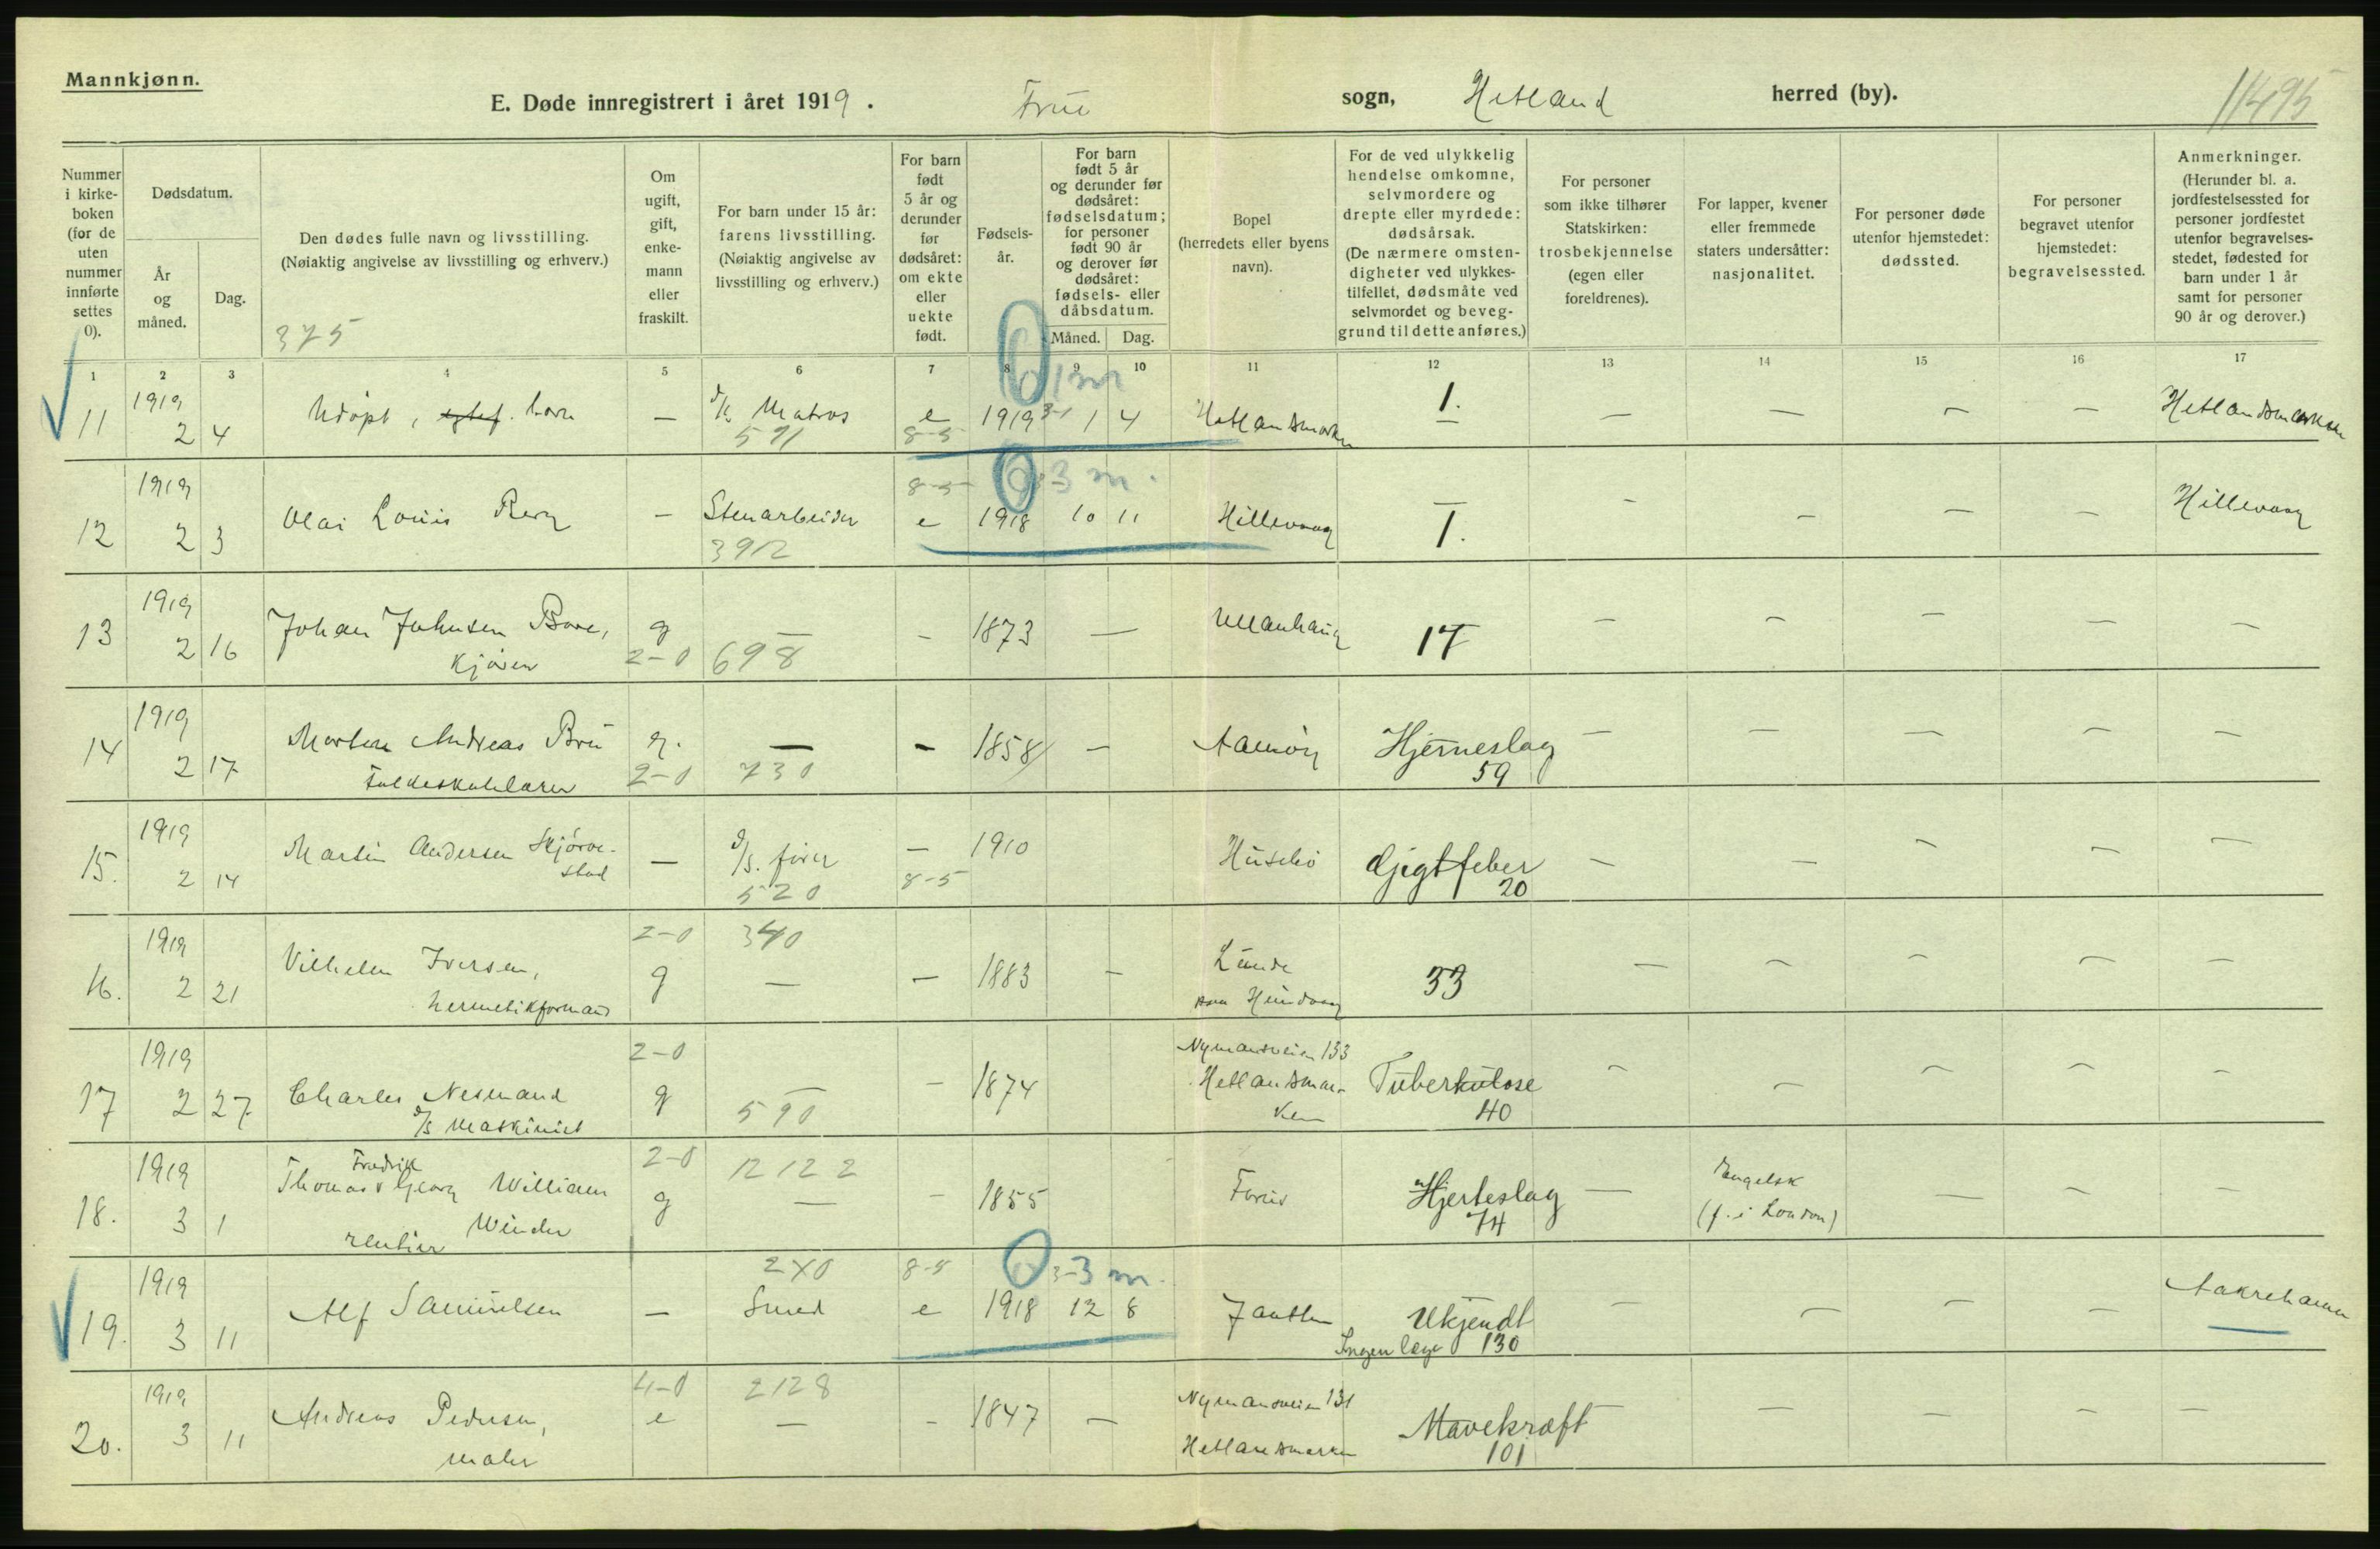 Mannkjønn.
E. Døde innregistrert i året 1919. Frue sogn, Hetland herred (by).
11495
Nummer i kirke-boken (for de uten nummer innførte settes 0).
Dødsdatum.
År og måned.
Dag.
Den dødes fulle navn og livsstilling.
(Nøiaktig angivelse av livsstilling og erhverv.)
375
Om ugift, gift, enke-mann eller fraskilt.
For barn under 15 år: farens livsstilling.
(Nøiaktig angivelse av livsstilling og erhverv.)
For barn født 5 år og derunder før dødsåret: om ekte eller uekte født.
Fødsels-år.
For barn født 5 år og derunder før dødsåret: fødselsdatum; for personer født 90 år og derover før dødsåret: fødsels- eller dåbsdatum.
Måned.
Dag.
Bopel (herredets eller byens navn).
For de ved ulykkelig hendelse omkomne, selvmordere og drepte eller myrdede: dødsårsak.
(De nærmere omsten-digheter ved ulykkes-tilfellet, dødsmåte ved selvmordet og beveg-grund til dette anføres.)
For personer som ikke tilhører Statskirken: trosbekjennelse (egen eller foreldrenes).
For lapper, kvener eller fremmede staters undersåtter: nasjonalitet.
For personer døde utenfor hjemstedet: dødssted.
For personer begravet utenfor hjemstedet: begravelsessted.
Anmerkninger.
(Herunder bl. a. jordfestelsessted for personer jordfestet utenfor begravelses-stedet, fødested for barn under 1 år samt for personer 90 år og derover.)
1 2 3 4 5 6 7 8 9 10 11 12 13 14 15 16 17
0 1 m
11 1919 2 4 Udøpt, egtef. barn — d/k Matros 591 e 8-5 1919 3-1 1 4 Hetlandsmarken 1. — — — — Hetlandsmarken
0 3 m.
12 1919 2 3 Olai Louis Berg — Stenarbeider 392 8-5 e 1918 10 11 Hillevaag 1. — — — — Hillevaag
13 1919 2 16 Johan Johnsen Bore, kjører g 2-0 — 698 — 1873 — Ullenhaug 17 — — — — —
14 1919 2 17 Morten Andreas Bru folkeskolelærer g. 2-0 — 730 — 1858 — Aamøy Hjerneslag 59 — — — — —
15. 1919 2 14 Martin Andersen Skjørve-stad — d/s. fører 520 — 8-5 1910 Husebø Gigtfeber 20 — — — — —
16. 1919 2 21 Vilhelm Iversen, hermetikformand 2-0 g 340 — — 1883 — Lunde paa Hundvaag 33 — — — — —
17 1919 2 27 Charles Nesmand d/s maskinist 2-0 g — 590 — 1874 Nymansveien 133 Hetlandsmar-ken Tuberkulose 40 — — — — —
18. 1919 3 1 Thomas Fredrik Georg William Winder rentier 2-0 g 12122 — — 1855 Forus Hjerteslag 74 — Engelsk (f. i London) — — —
0 3-3 m.
19. 1919 3 11 Alf Samuelsen — 240 Smed 8-5 e 1918 12 8 Jaatten Ukjendt Ingen læge 130 — — — — Aakrehamn
20. 1919 3 11 Andreas Pedersen, maler 4-0 e 2128 — — 1847 — Nymansveien 131 Hetlandsmarken Mavekræft 101 — — — — —